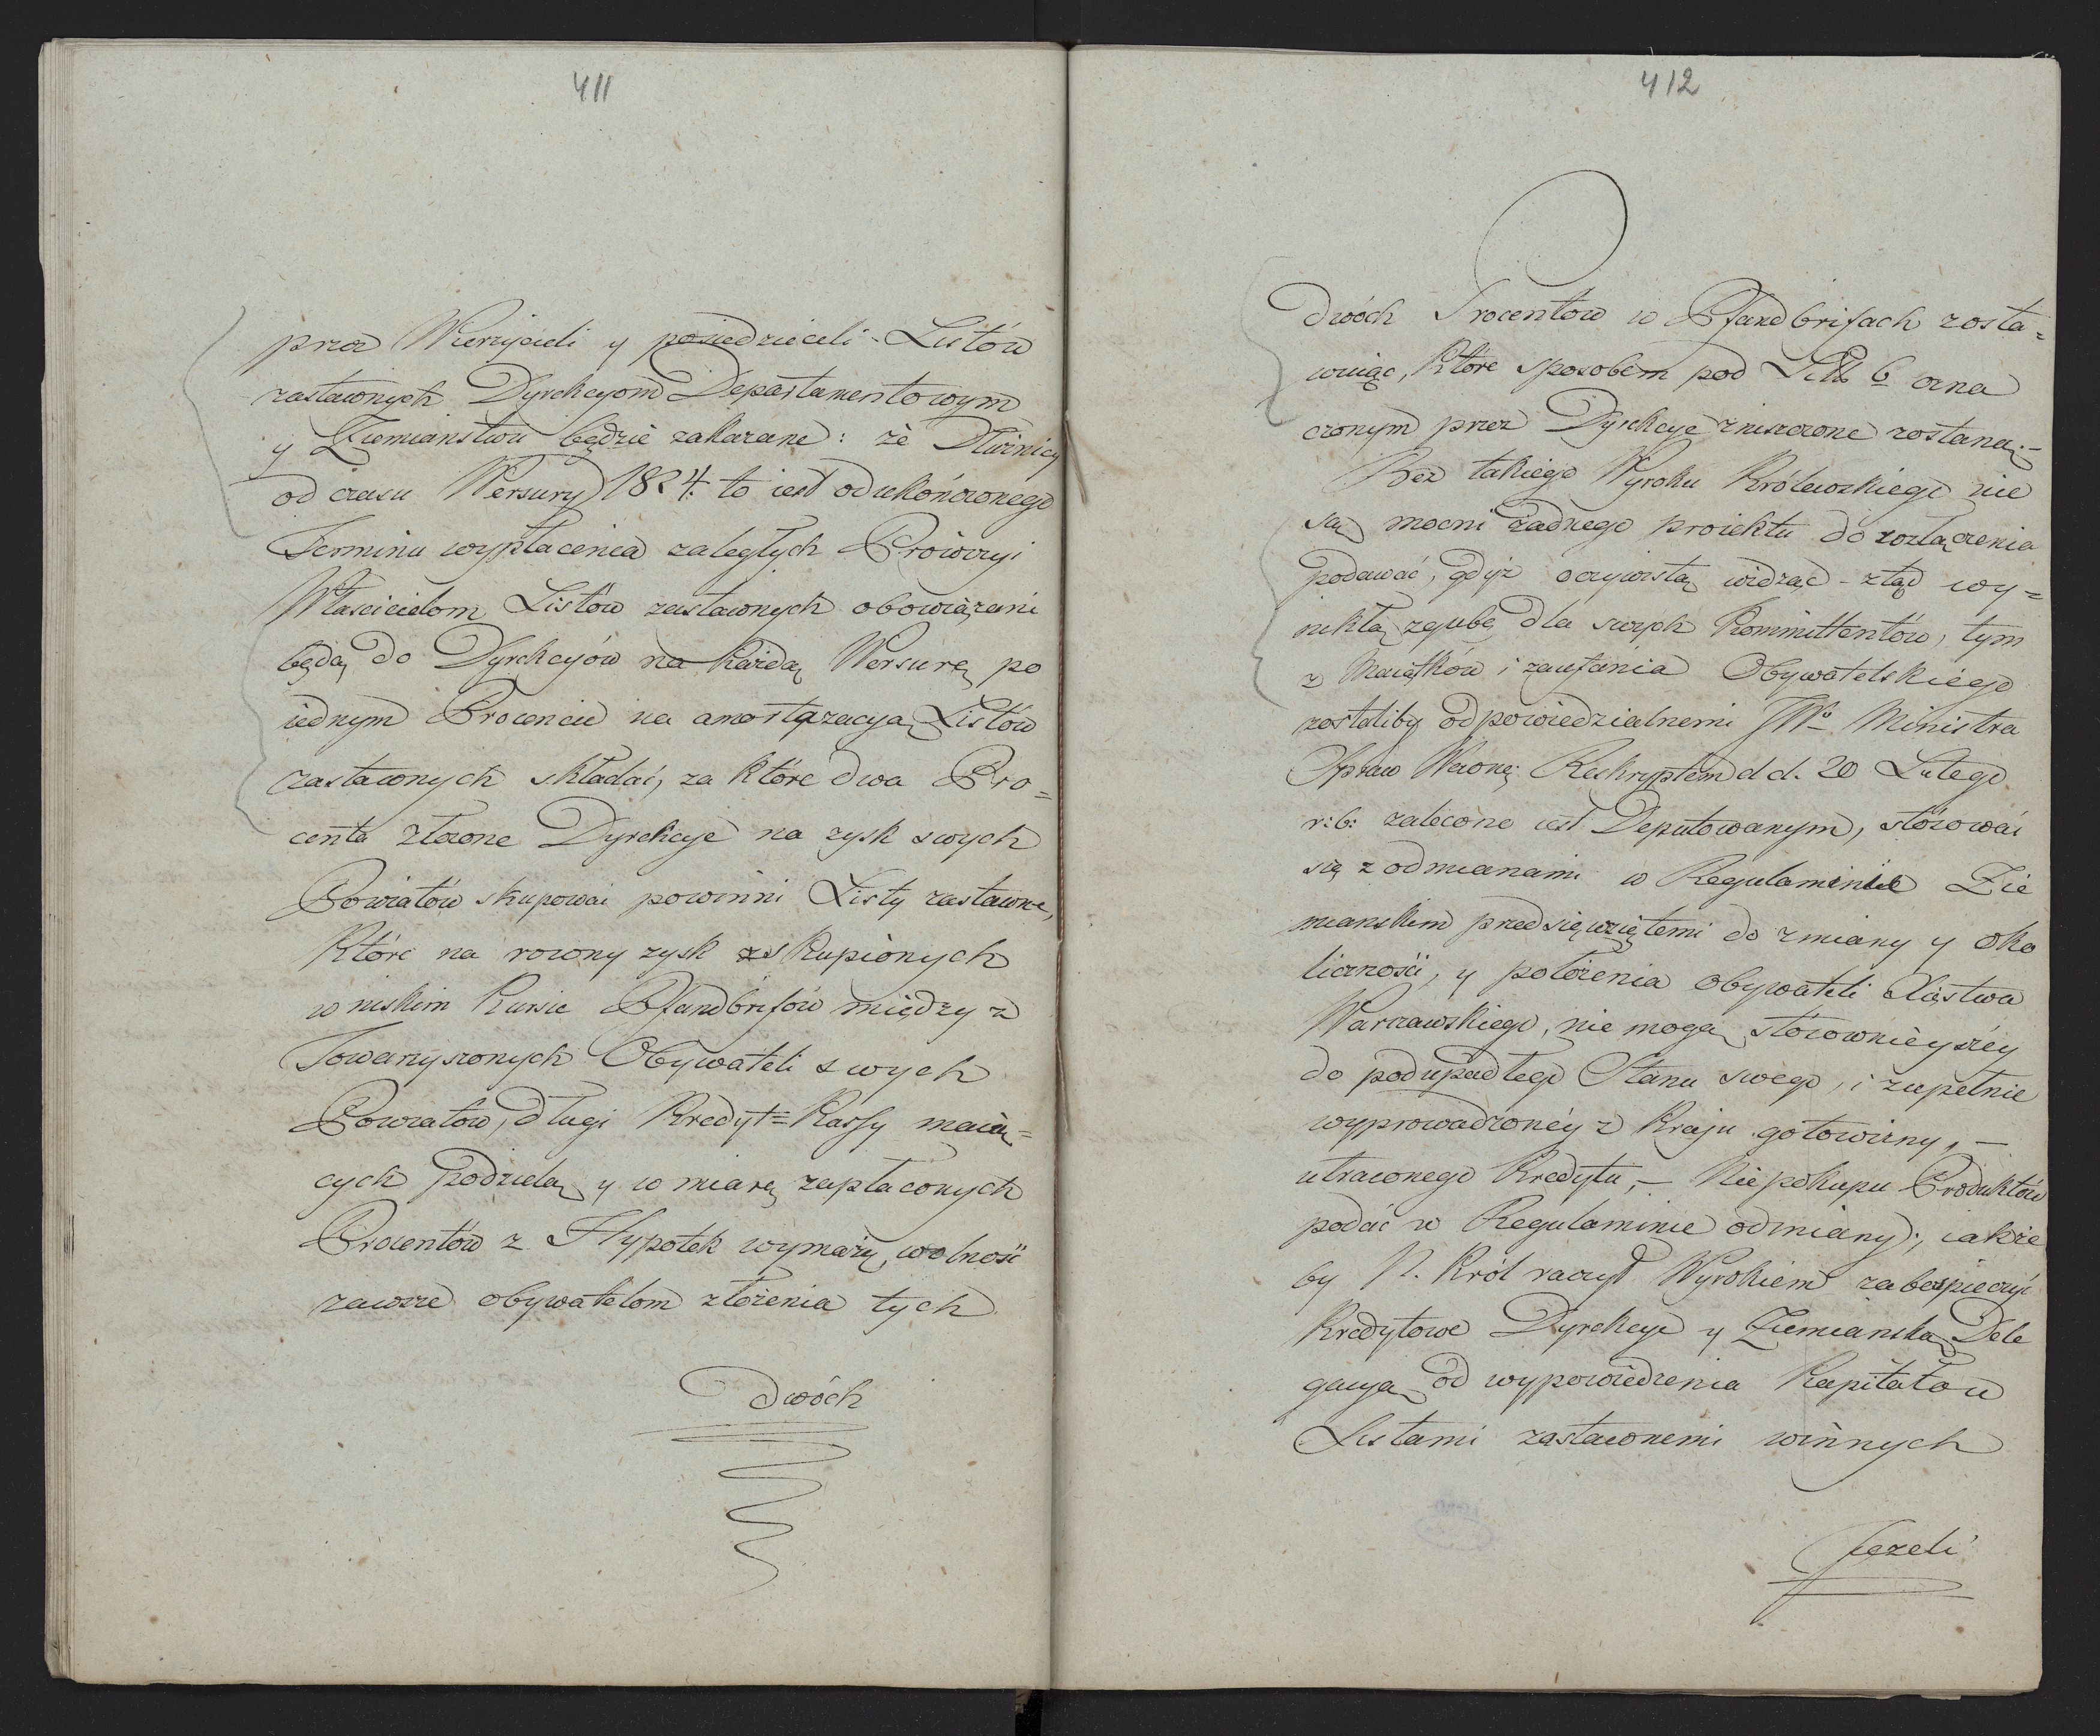 411
przez Wierzycieli y posiedzicieli Listów
zastawnych Dyrekcyom Departamentowym
y Ziemianstwu będzie zakazane: że Dłużnicy
od czasu Wersury 1824. to iest od ukończonego
Terminu wypłacenia zaległych Prowizyi
Włascicielom Listów zastawnych obowiązani
będą do Dyrekcyów na każdą Wersurę po
iednym Procencie na amortyzacyą Listów
zastawnych składać, za które dwa Pro=
centa złożone Dyrekcye na zysk swych
Powiatów skupować powinni Listy zastawne,
Które na rowny zysk zskupionych
w niskim Kursie Pfandbrifów między z
Towarzyszonych Obywateli swych
Powiatów, długi Kredyt=Kassy maią=
cych podzielą y w miarę zapłaconych
Procentów z Hypotek wymażą, wolność
zawsze obywatelom złożenia tych
dwóch
412
dwóch Procentow w Pfandbrifach zosta=
wuiąc, Które sposobem pod Litt. 6 ozna
czonym przez Dyrekcye zniszczone zostaną.–
Bez takiego Wyroku Królewskiego nie
są mocni żadnego proiektu do rozłączenia
podawać, gdyż oczywistą widząc ztąd wy=
nikłą zgubę dla swych Kommittentów, tym
z Maiątków i zaufania Obywatelskiego
zostaliby odpowiedzialnemi JWo Ministra
Spraw Wewnę: Reskryptem d d. 20 Lutego
r: b: zalecono iest Deputowanym, stósować
się z odmianami w Regulaminie Zie
mianskim przedsięwziętemi do zmiany y oko
liczności, y położenia obywateli Xięstwa
Warszawskiego, nie mogą stósownieyszéy
do podupadłego Stanu swego, i zupełnie
wyprowadzonéy z Kraju gotowizny, –
utraconego Kredytu, – Niepokupu Produktów
podać w Regulaminie odmiany, iakże
by N. Król raczył Wyrokiem zabezpieczyć
Kredytowe Dyrekcye y Ziemianską Dele
gacyą od wypowiedzenia Kapitałow
Listami zastawnemi winnych
Jezeli